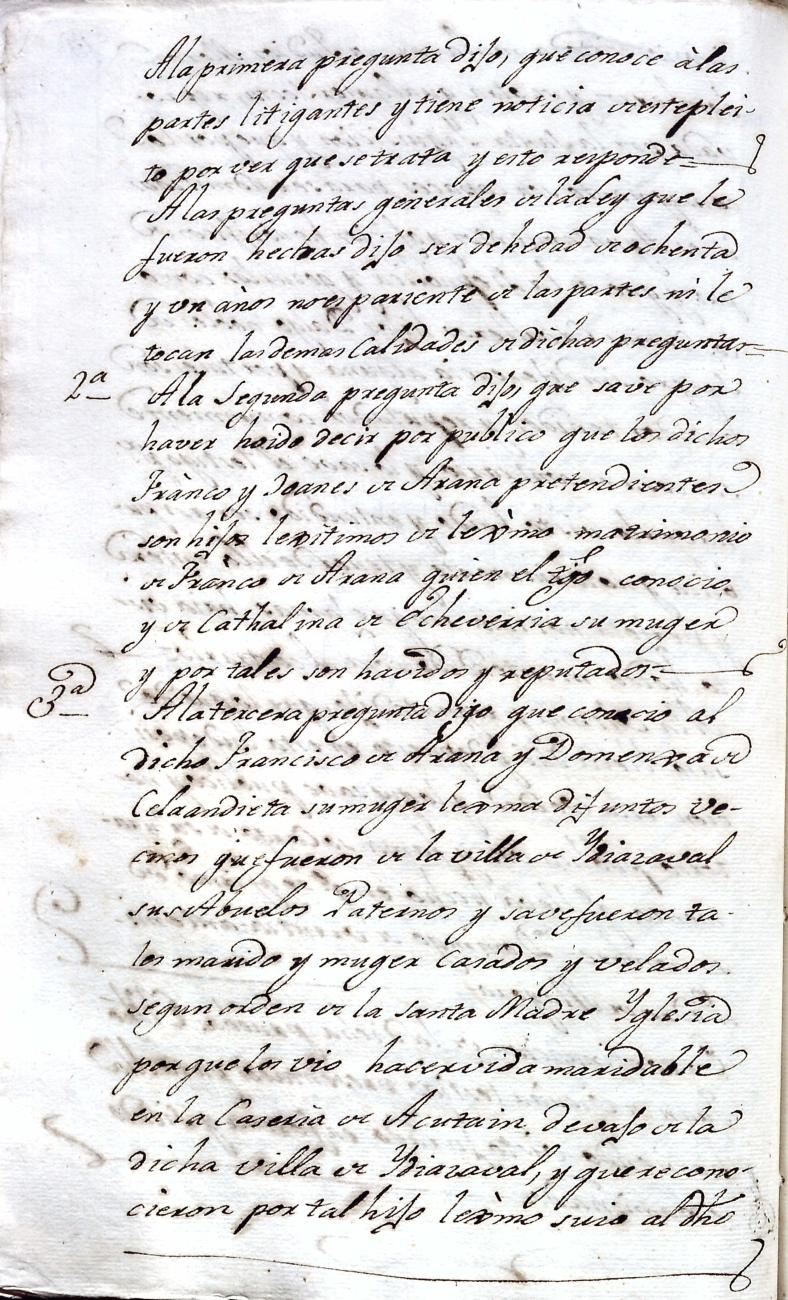 A la primera pregunta dijo, que conoce à las
partes litigantes y tiene noticia de este plei-
to por ver que se trata y esto responde
A las preguntas generales de la Ley que le
fueron hechas dijo ser de hedad de ochenta
y un años no es pariente de las partes ni le
tocan las demas Calidades de dichas preguntas
2ª A la Segunda pregunta dijo, que save por
haver hoido decir por publico que los dichos
Franco y Joanes de Arana pretendientes
son hijos lexitimos de lexmo matrimonio
de Franco de Arana quien el tgo conocio
y de Cathalina de Echeverria su muger
y por tales son havidos y reputados
3ª A la tercera pregunta Digo que conocio al
dicho Francisco de Arana y Domenxa de
Celaandieta su muger lexma difuntos ve-
cinos que fueron de la villa de Ydiazaval
sus Abuelos Paternos y save fueron ta-
les marido y muger Casados y velados
segun orden de la Santa Madre Yglesia
porque los vio hacer vida maridable
en la Caseria de Acutain devajo de la
dicha villa de Ydiazaval, y que recono-
cieron por tal hijo lexmo suio al dho